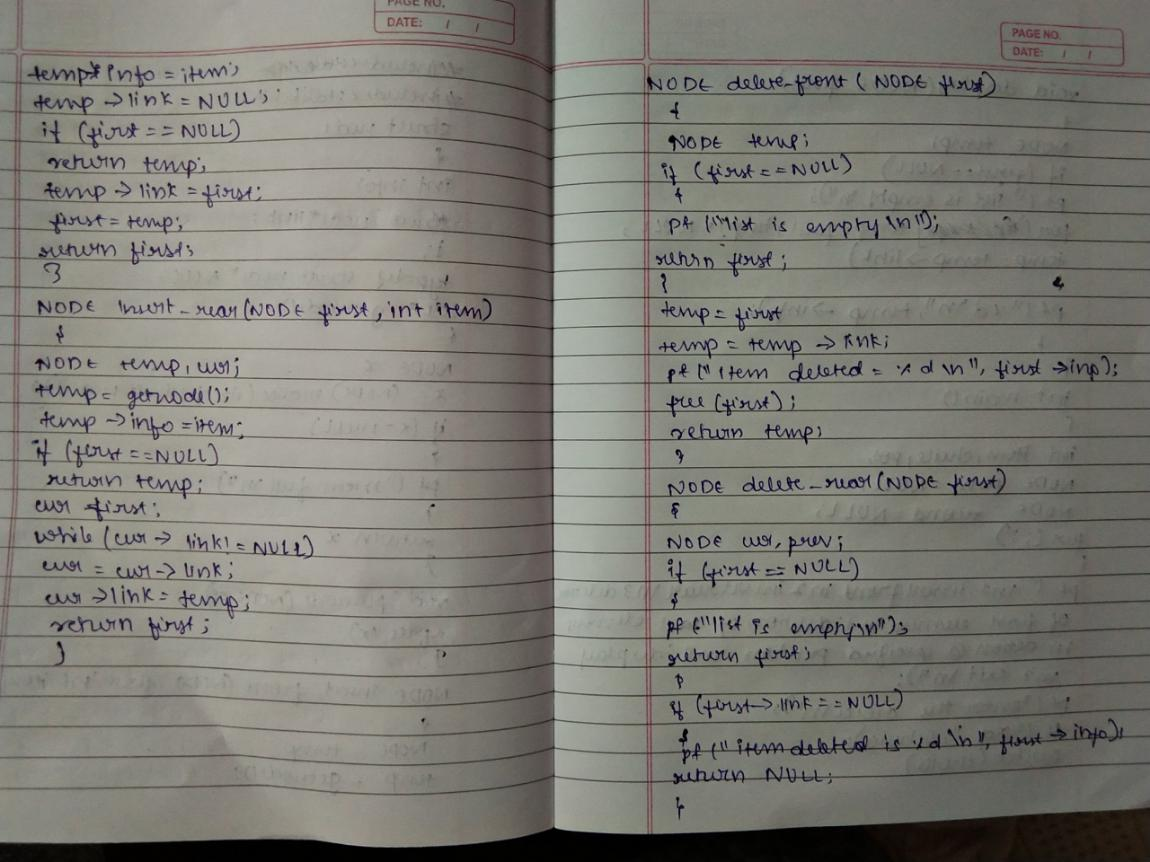 PAGE NO.
DATE: / /
temp→info = item;
temp → link = NULL;
if (first == NULL)
return temp;
temp → link = first;
first = temp;
return first;
}
NODE insert_rear(NODE first, int item)
{
NODE temp, cur;
temp = getnode();
temp → info = item;
if (first == NULL)
return temp;
cur first;
while (cur → link! = NULL)
cur = cur → link;
cur → link = temp;
return first;
}
PAGE NO.
DATE: / /
NODE delete-front ( NODE first)
{
NODE temp;
if (first == NULL)
{
pf ("list is empty \n");
return first;
}
temp = first
temp = temp → link;
pf ("item deleted = %d \n", first → inp);
free (first);
return temp;
}
NODE delete_rear(NODE first)
{
NODE cur, prev;
if (first == NULL)
{
pf ("list is empty\n");
return first;
}
if (first → link == NULL)
{
pf ("item deleted is %d \n", first → info);
return NULL;
}